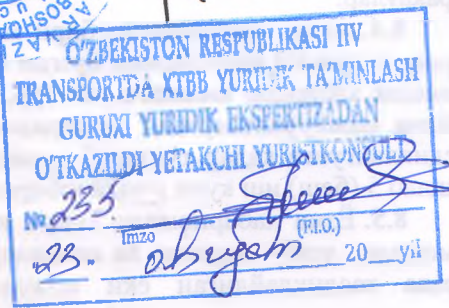 O'ZBEKISTON RESPUBLIKASI IIV
TRANSPORTDA XTBB YURIDIK TA'MINLASH
GURUXI YURIDIK EKSPERTIZADAN
O'TKAZILDI YETAKCHI YURISTKONSULT
№ 235
Imzo (F.I.O.)
"23" август 20___yil